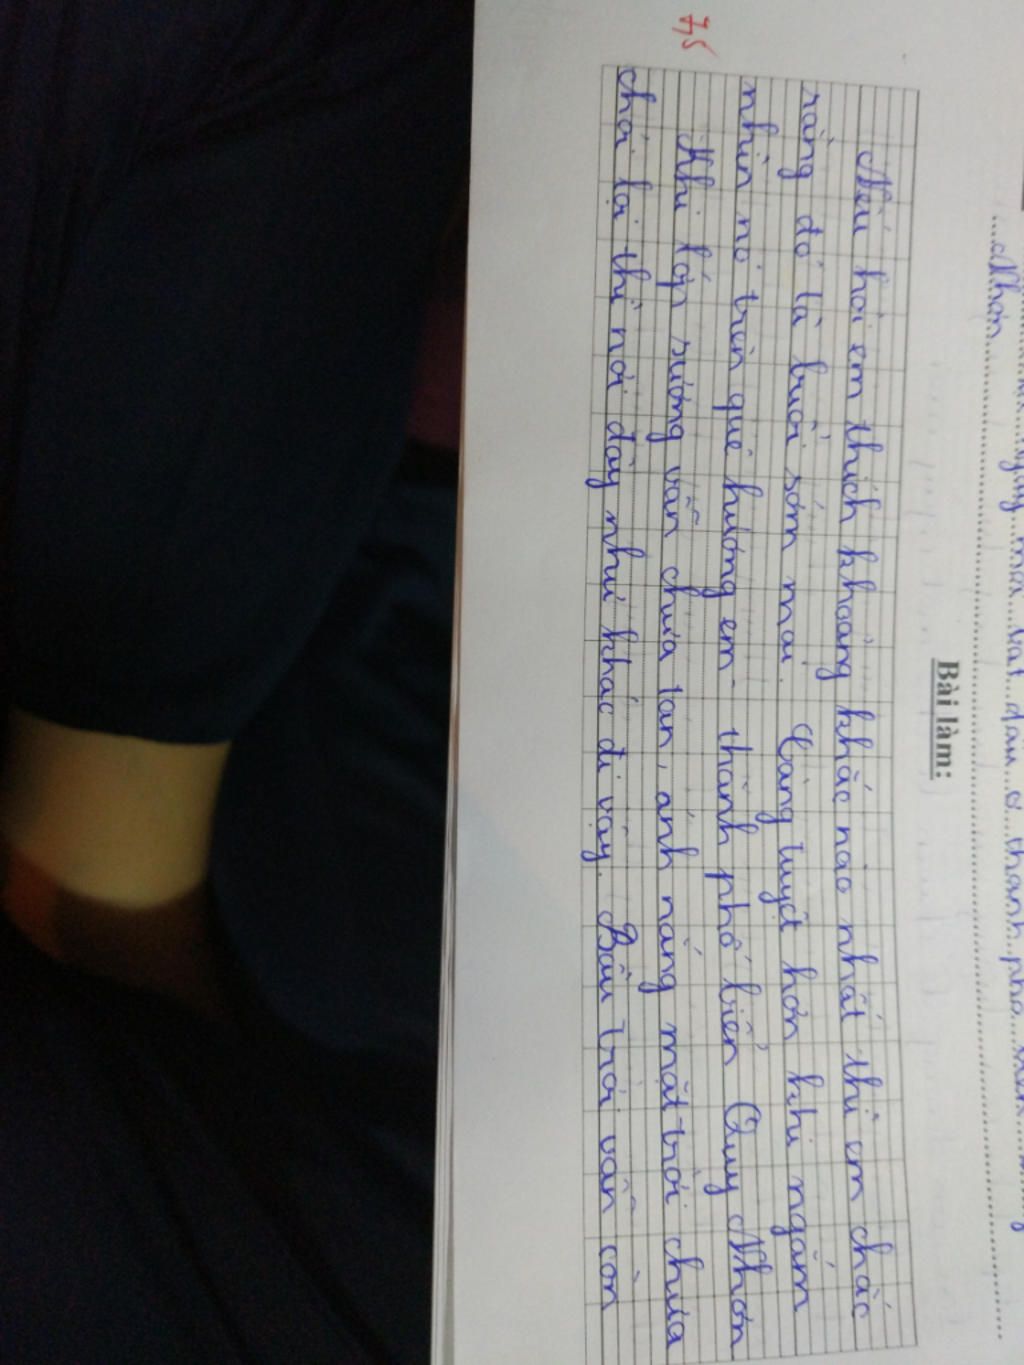 Nhơn
Bài làm:
Nếu hỏi em thích khoảng khắc nào nhất thì em chắc
rằng đó là buổi sớm mai. Càng tuyệt hơn khi ngắm
nhìn nó trên quê hương em - thành phố biển Quy Nhơn
7,5
Khi lớp sương vẫn chưa tan, ánh nắng mặt trời chưa
chói lọi thì nơi đây như khác đi vậy. Bầu trời vẫn còn